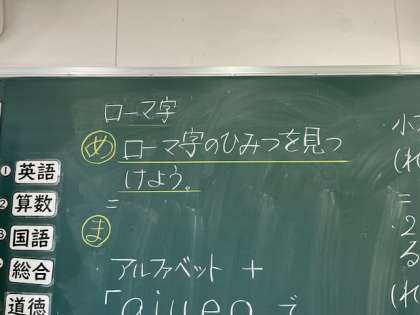 ローマ字
め ローマ字のひみつを見つ
けよう。
=
ま
アルファベット +
「aiueo で
① 英語
② 算数
③ 国語
総合
道徳
小
(れ
=
・2
る
(れ